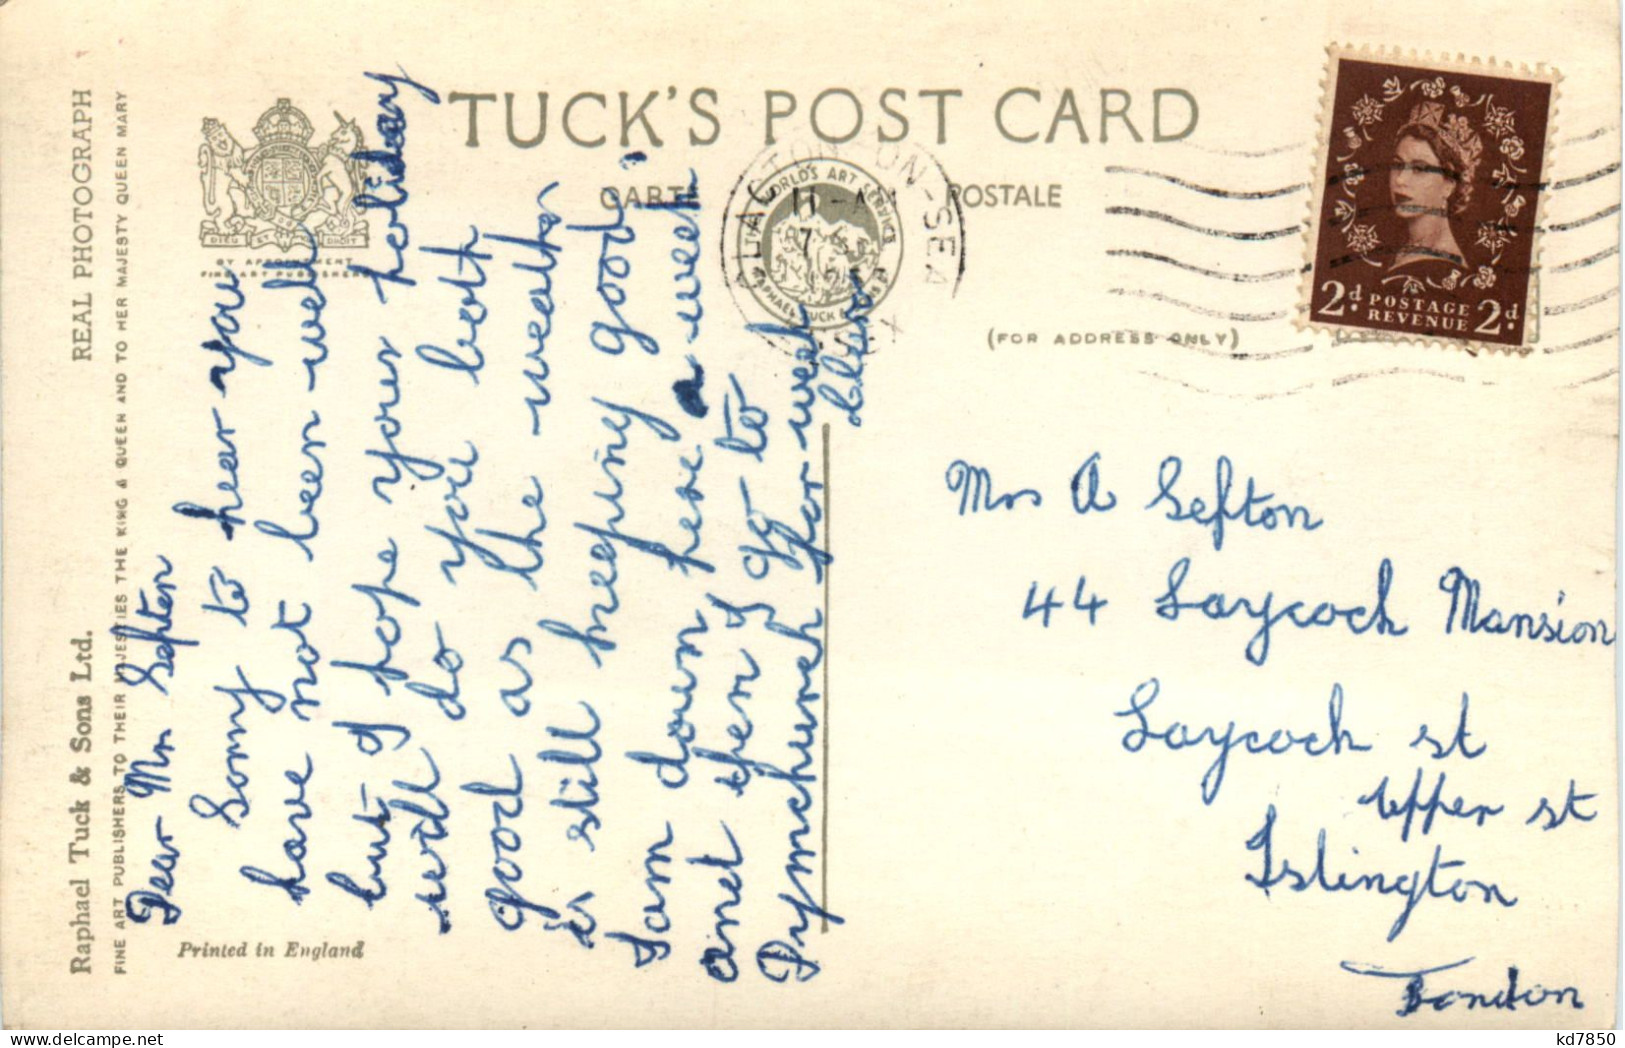 TUCK'S POST CARD
CARTE POSTALE
(FOR ADDRESS ONLY)
REAL PHOTOGRAPH
Raphael Tuck & Sons Ltd.
FINE ART PUBLISHERS TO THEIR MAJESTIES THE KING & QUEEN AND TO HER MAJESTY QUEEN MARY
DIEU ET MON DROIT
BY APPOINTMENT
FINE ART PUBLISHERS
Printed in England
CLACTON-ON-SEA
11-AM
7
ESSEX
WORLD'S ART SERVICE
RAPHAEL TUCK &
2d POSTAGE REVENUE 2d
Dear Mrs Sefton
Sorry to hear you
have not been well
but I hope your holiday
will do you both
good as the weather
is still keeping good
I am down here a week
and then I go to
Dymchurch for week
Clara
Mrs A Sefton
44 Laycock Mansion
Laycock st
Upper st
Islington
London
kd7850